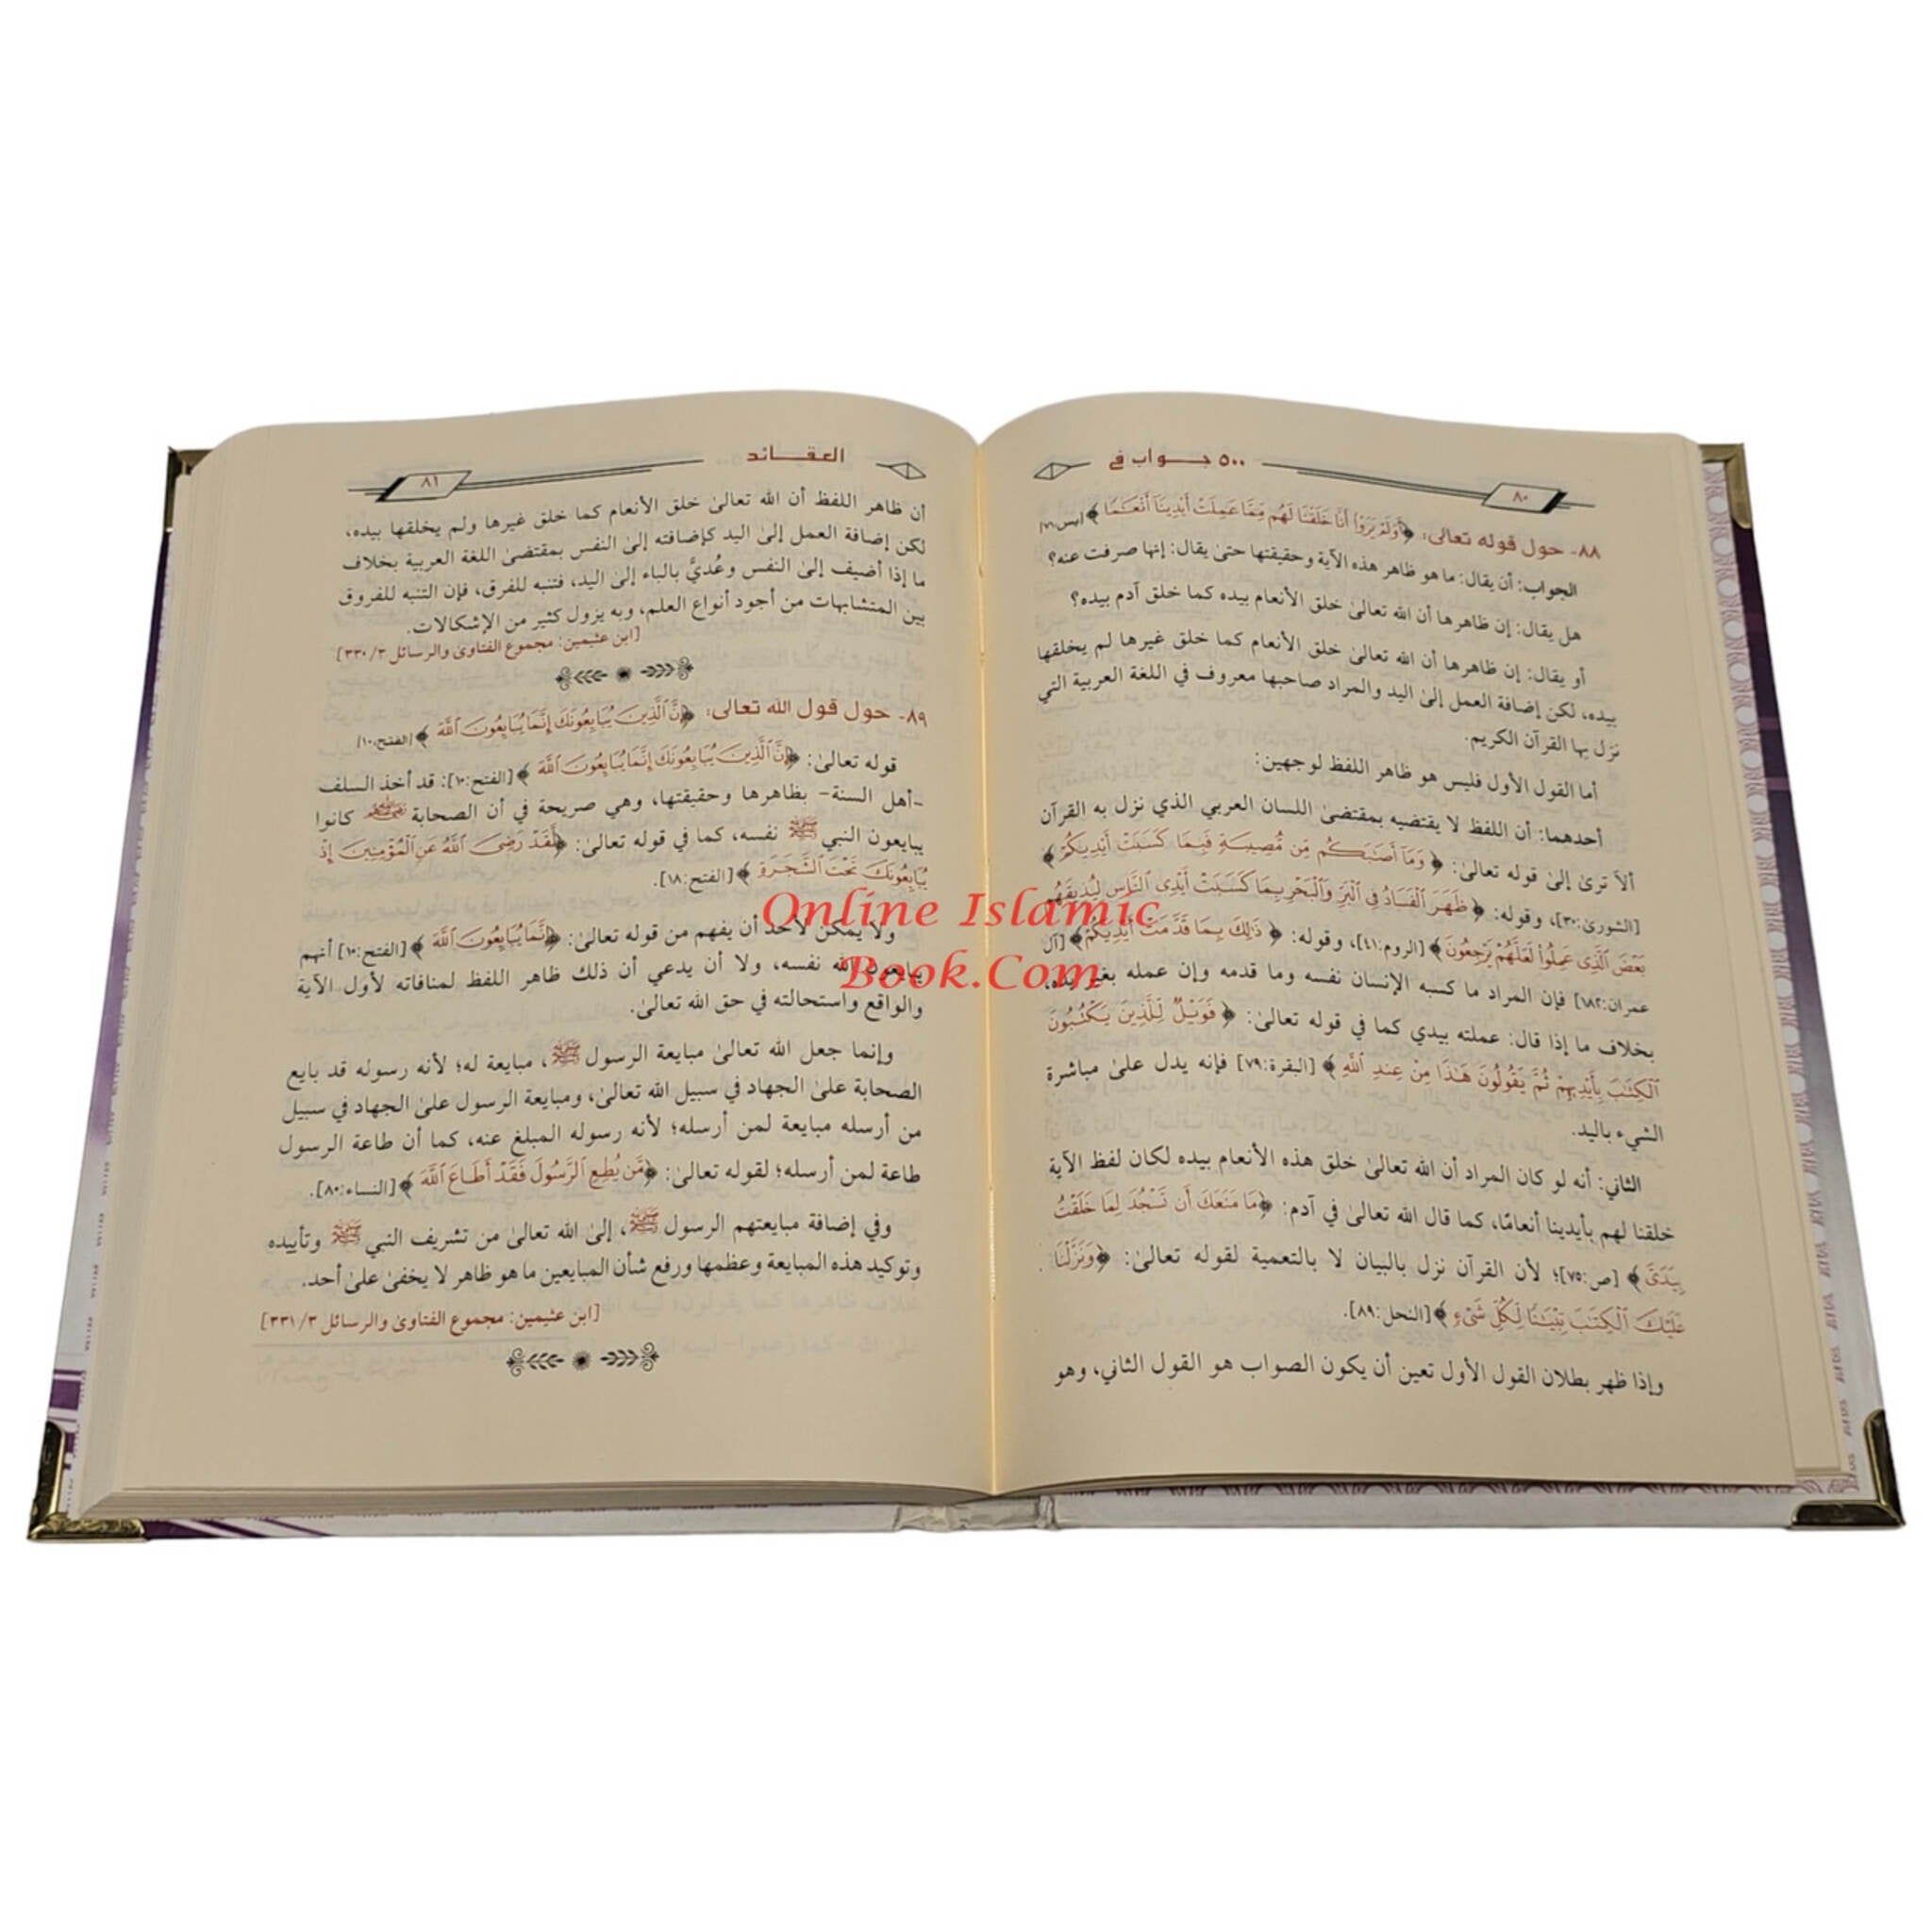 ٥٠٠ جـــواب في
٨٠
٨٨- حول قوله تعالى: ﴿أَوَلَمْ يَرَوْا أَنَّا خَلَقْنَا لَهُم مِّمَّا عَمِلَتْ أَيْدِينَا أَنْعَـٰمًا﴾
الجواب: أن يقال: ما هو ظاهر هذه الآية وحقيقتها حتىٰ يقال: إنها صرفت عنه؟
هل يقال: إن ظاهرها أن الله تعالىٰ خلق الأنعام بيده كما خلق آدم بيده؟
أو يقال: إن ظاهرها أن الله تعالىٰ خلق الأنعام كما خلق غيرها لم يخلقها
بيده، لكن إضافة العمل إلىٰ اليد والمراد صاحبها معروف في اللغة العربية التي
نزل بها القرآن الكريم.
أما القول الأول فليس هو ظاهر اللفظ لوجهين:
أحدهما: أن اللفظ لا يقتضيه بمقتضىٰ اللسان العربي الذي نزل به القرآن
ألا ترىٰ إلىٰ قوله تعالىٰ: ﴿وَمَا أَصَـٰبَكُم مِّن مُّصِيبَةٍ فَبِمَا كَسَبَتْ أَيْدِيكُمْ﴾
[الشورىٰ:٣٠]، وقوله: ﴿ظَهَرَ ٱلْفَسَادُ فِى ٱلْبَرِّ وَٱلْبَحْرِ بِمَا كَسَبَتْ أَيْدِى ٱلنَّاسِ لِيُذِيقَهُم
بَعْضَ ٱلَّذِى عَمِلُوا۟ لَعَلَّهُمْ يَرْجِعُونَ﴾ [الروم:٤١]، وقوله: ﴿ذَٰلِكَ بِمَا قَدَّمَتْ أَيْدِيكُمْ﴾ [آل
عمران:١٨٢] فإن المراد ما كسبه الإنسان نفسه وما قدمه وإن عمله بغير يده،
بخلاف ما إذا قال: عملته بيدي كما في قوله تعالىٰ: ﴿فَوَيْلٌ لِّلَّذِينَ يَكْتُبُونَ
ٱلْكِتَـٰبَ بِأَيْدِيهِمْ ثُمَّ يَقُولُونَ هَـٰذَا مِنْ عِندِ ٱللَّهِ﴾ [البقرة:٧٩] فإنه يدل علىٰ مباشرة
الشيء باليد.
الثاني: أنه لو كان المراد أن الله تعالىٰ خلق هذه الأنعام بيده لكان لفظ الآية
خلقنا لهم بأيدينا أنعامًا، كما قال الله تعالىٰ في آدم: ﴿مَا مَنَعَكَ أَن تَسْجُدَ لِمَا خَلَقْتُ
بِيَدَىَّ﴾ [ص:٧٥]؛ لأن القرآن نزل بالبيان لا بالتعمية لقوله تعالىٰ: ﴿وَنَزَّلْنَا
عَلَيْكَ ٱلْكِتَـٰبَ تِبْيَـٰنًا لِّكُلِّ شَىْءٍ﴾ [النحل:٨٩].
وإذا ظهر بطلان القول الأول تعين أن يكون الصواب هو القول الثاني، وهو
العقـــائد
٨١
أن ظاهر اللفظ أن الله تعالىٰ خلق الأنعام كما خلق غيرها ولم يخلقها بيده،
لكن إضافة العمل إلىٰ اليد كإضافته إلىٰ النفس بمقتضىٰ اللغة العربية بخلاف
ما إذا أضيف إلىٰ النفس وعُديَّ بالباء إلىٰ اليد، فتنبه للفرق، فإن التنبه للفروق
بين المتشابهات من أجود أنواع العلم، وبه يزول كثير من الإشكالات.
[ابن عثيمين: مجموع الفتاوىٰ والرسائل ٣/ ٣٣٠]
٨٩- حول قول الله تعالى: ﴿إِنَّ ٱلَّذِينَ يُبَايِعُونَكَ إِنَّمَا يُبَايِعُونَ ٱللَّهَ﴾ [الفتح:١٠]
قوله تعالىٰ: ﴿إِنَّ ٱلَّذِينَ يُبَايِعُونَكَ إِنَّمَا يُبَايِعُونَ ٱللَّهَ﴾ [الفتح:١٠]: قد أخذ السلف
-أهل السنة- بظاهرها وحقيقتها، وهي صريحة في أن الصحابة كانوا
يبايعون النبي ﷺ نفسه، كما في قوله تعالىٰ: ﴿لَّقَدْ رَضِىَ ٱللَّهُ عَنِ ٱلْمُؤْمِنِينَ إِذْ
يُبَايِعُونَكَ تَحْتَ ٱلشَّجَرَةِ﴾ [الفتح:١٨].
ولا يمكن لأحد أن يفهم من قوله تعالىٰ: ﴿إِنَّمَا يُبَايِعُونَ ٱللَّهَ﴾ [الفتح:١٠] أنهم
يبايعون الله نفسه، ولا أن يدعي أن ذلك ظاهر اللفظ لمنافاته لأول الآية
والواقع واستحالته في حق الله تعالىٰ.
وإنما جعل الله تعالىٰ مبايعة الرسول ﷺ، مبايعة له؛ لأنه رسوله قد بايع
الصحابة علىٰ الجهاد في سبيل الله تعالىٰ، ومبايعة الرسول علىٰ الجهاد في سبيل
من أرسله مبايعة لمن أرسله؛ لأنه رسوله المبلغ عنه، كما أن طاعة الرسول
طاعة لمن أرسله؛ لقوله تعالىٰ: ﴿مَّن يُطِعِ ٱلرَّسُولَ فَقَدْ أَطَاعَ ٱللَّهَ﴾ [النساء:٨٠].
وفي إضافة مبايعتهم الرسول ﷺ، إلىٰ الله تعالىٰ من تشريف النبي ﷺ وتأييده
وتوكيد هذه المبايعة وعظمها ورفع شأن المبايعين ما هو ظاهر لا يخفىٰ علىٰ أحد.
[ابن عثيمين: مجموع الفتاوىٰ والرسائل ٣/ ٣٣١]
Online Islamic
Book.Com